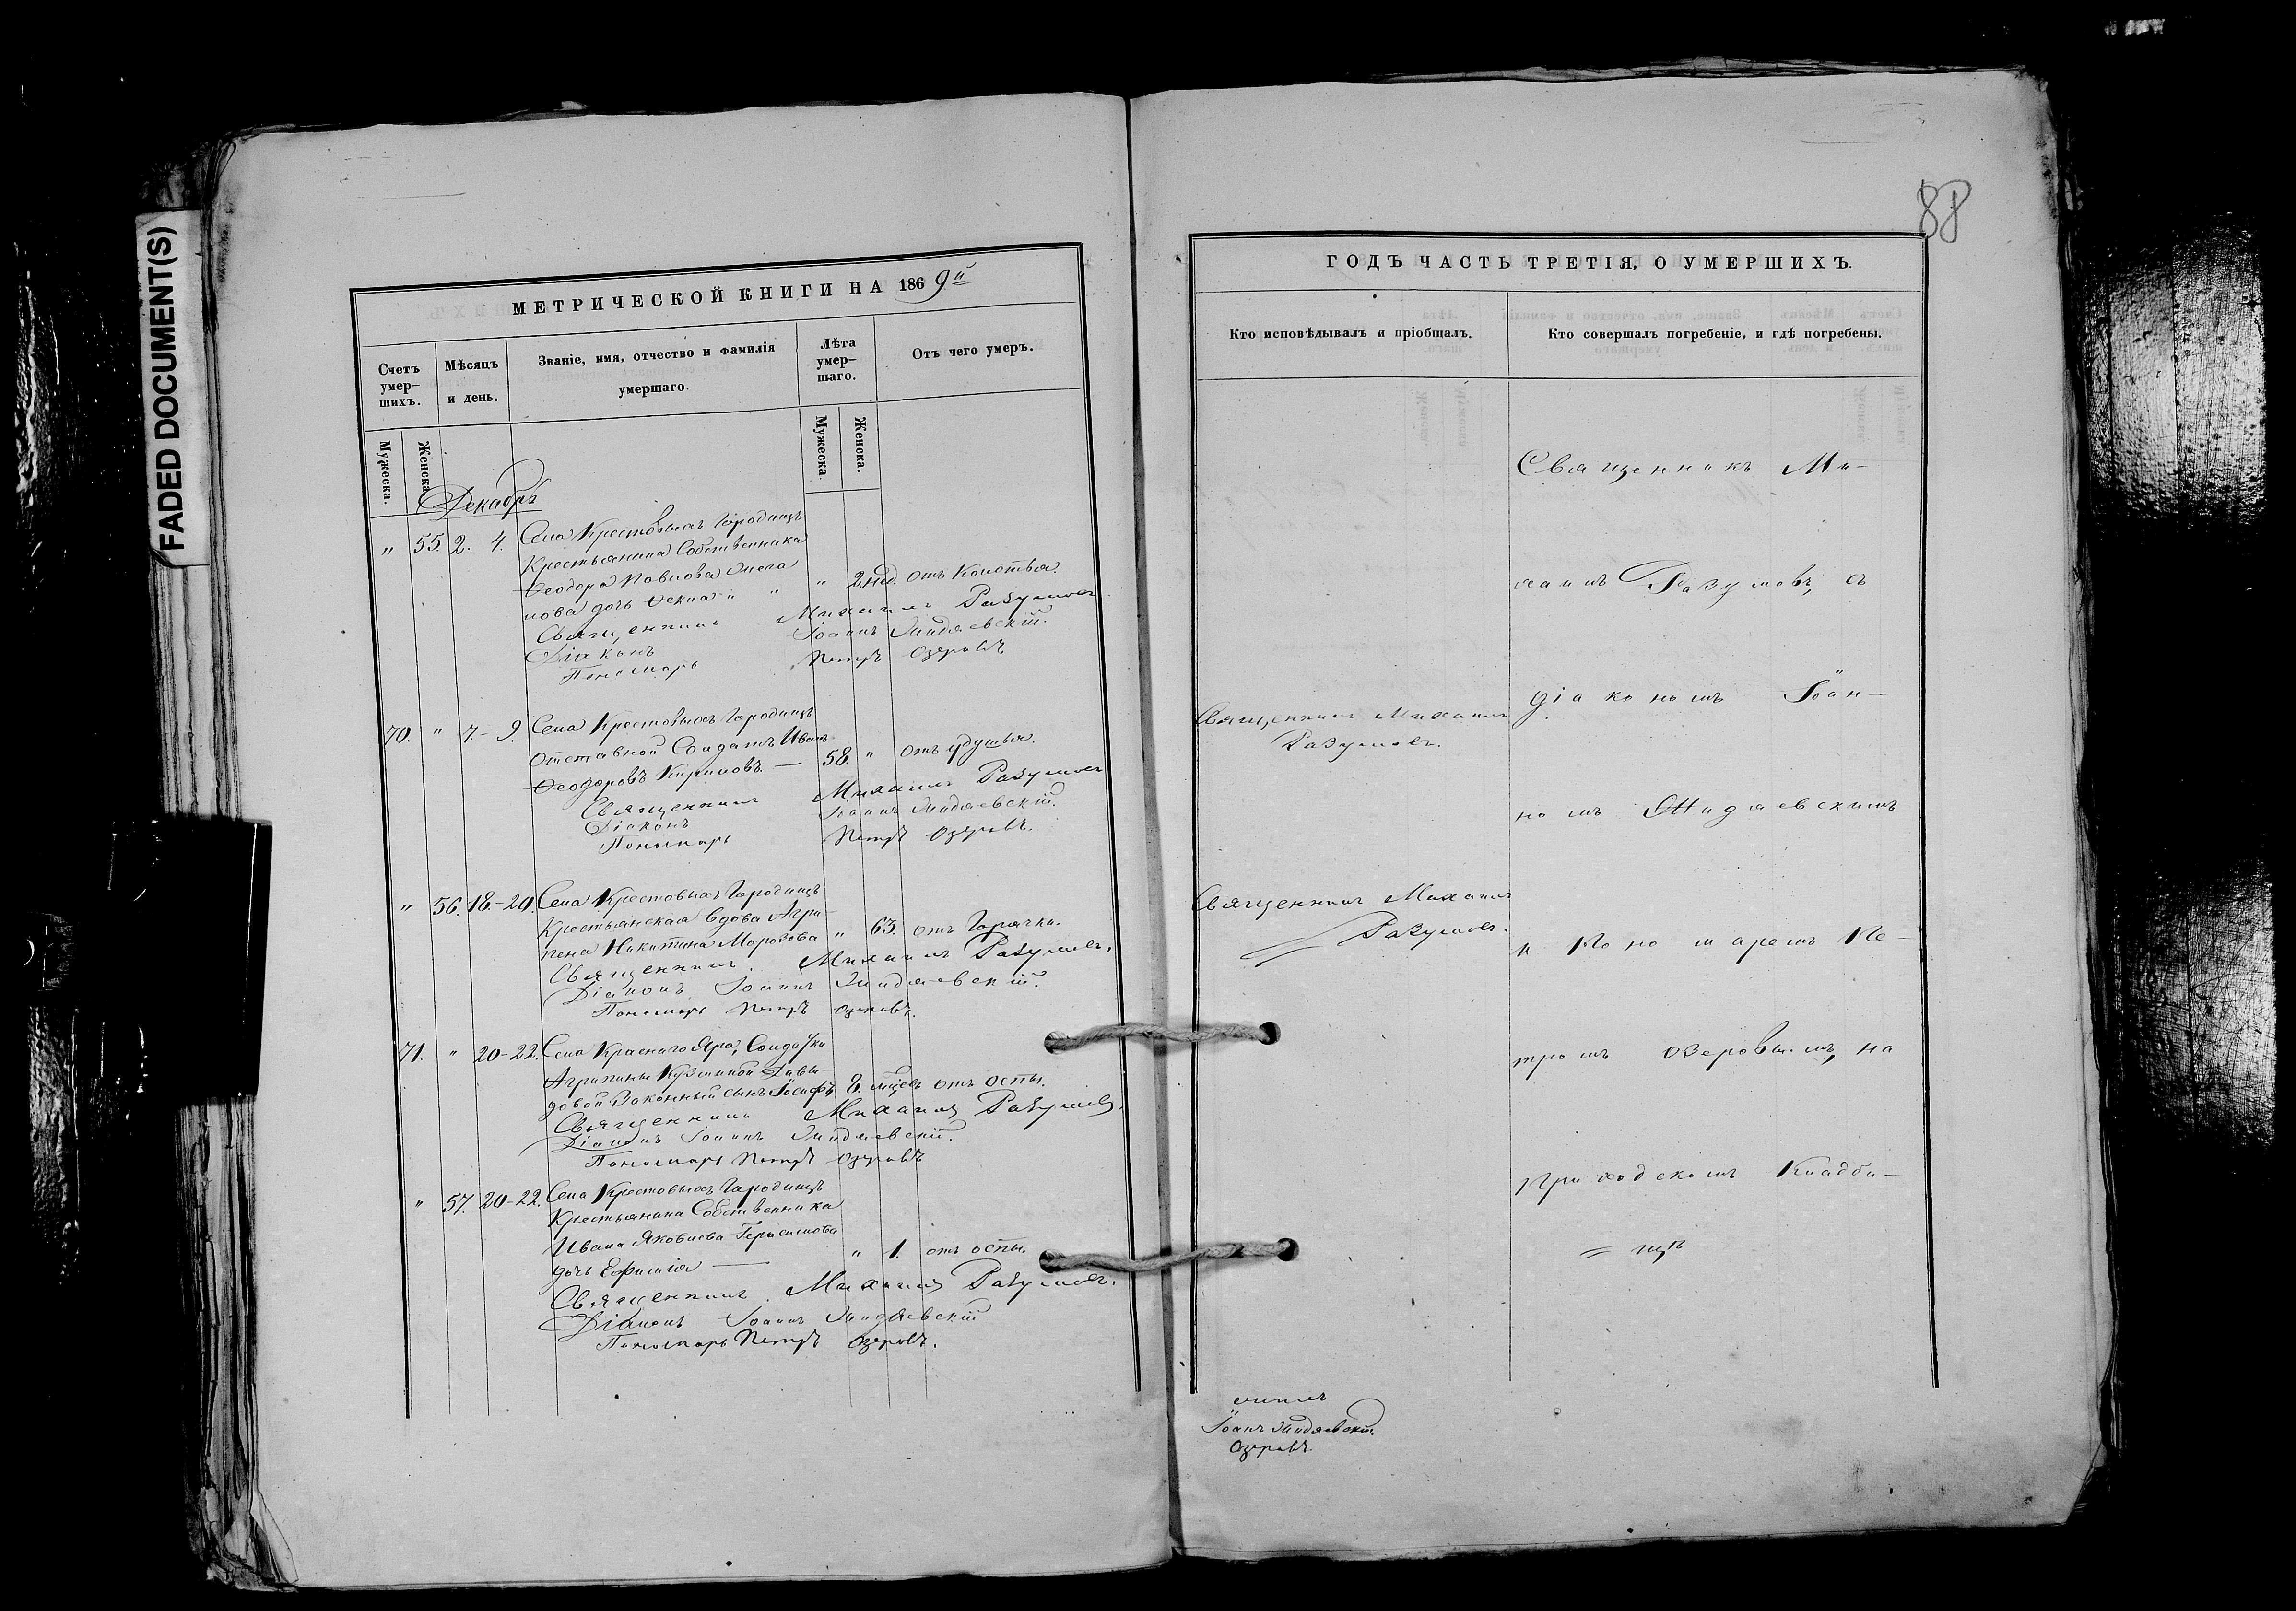 FADED DOCUMENT(S)
МЕТРИЧЕСКОЙ КНИГИ НА 1869й
Счетъ умер-шихъ.
Мѣсяцъ и день.
Званіе, имя, отчество и фамилія умершаго.
Лѣта умер-шаго.
Отъ чего умеръ.
Мужеска. Женска. Мужеска. Женска.
Декабрь
" 55. 2. 4. Села Крестовыхъ Городищъ
Крестьянина Собственника
Ѳеодора Павлова
нова дочь Ѳекла " " " 2 нед. отъ Колотья.
Священникъ Михаилъ Разумовъ
Діаконъ Іоаннъ
Пономарь Петръ Озеровъ
70. " 7.-9. Села Крестовыхъ Городищъ
Отставной Солдатъ Иванъ
Ѳеодоровъ Кириловъ. — 58. " отъ удушья.
Священникъ Михаилъ Разумовъ
Діаконъ Іоаннъ
Пономарь Петръ Озеровъ.
" 56. 18.-20. Села Крестовыхъ Городищъ
Крестьянская вдова Агри-
пена Никитина Морозова " 63. отъ Горячки.
Священникъ. Михаилъ Разумовъ.
Діаконъ Іоаннъ
Пономарь Петръ Озеровъ.
71. " 20-22. Села Краснаго Яра, Солдатки
Агрипины Кузминой Давы-
довой Законный сынъ Іосифъ 8. мцевъ отъ оспы.
Священникъ Михаилъ Разумовъ.
Діаконъ Іоаннъ
Пономарь Петръ Озеровъ
" 57. 20-22. Села Крестовыхъ Городищъ
Крестьянина Собственника
Ивана Яковлева Герасимова
дочь Ефимія — " 1. отъ оспы.
Священникъ. Михаилъ Разумовъ.
Діаконъ Іоаннъ
Пономарь Петръ Озеровъ.
88
ГОДЪ ЧАСТЬ ТРЕТІЯ, О УМЕРШИХЪ.
Кто исповѣдывалъ и пріобщалъ.
Кто совершалъ погребеніе, и гдѣ погребены.
Священникъ Михаилъ
Разумовъ.
Священникъ Михаилъ
Разумовъ.
Священникъ Ми-
хаилъ Разумовъ, съ
діакономъ Іоан-
номъ
и Пономаремъ Пе-
тромъ Озеровымъ, на
приходскомъ Кладби-
= щѣ
Іоаннъ
Озеровъ.